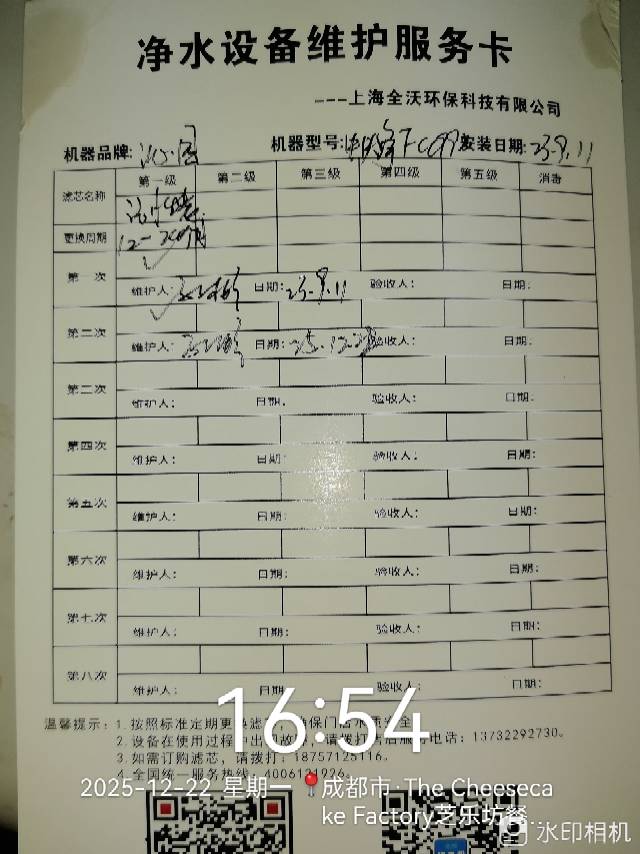 净水设备维护服务卡
---上海全沃环保科技有限公司
机器品牌: 机器型号: 安装日期:23.9.11
滤芯名称 第一级 第二级 第三级 第四级 第五级 消毒
更换周期 12-
第一次 维护人: 日期:23.9.11 验收人: 日期:
第二次 维护人: 日期:25.12.22 验收人: 日期:
第三次 维护人: 日期: 验收人: 日期:
第四次 维护人: 日期: 验收人: 日期:
第五次 维护人: 日期: 验收人: 日期:
第六次 维护人: 日期: 验收人: 日期:
第七次 维护人: 日期: 验收人: 日期:
第八次 维护人: 日期: 验收人: 日期:
16:54
温馨提示: 1.按照标准定期更换滤,确保门店水质安全
2.设备在使用过程中出问故障,请拨打售后服务电话:13732292730。
3.如需订购滤芯,请拨打:18757125116。
4.全国统一服务热线:4006121926。
2025-12-22 星期一 成都市·The Cheeseca
ke Factory芝乐坊餐...
水印相机